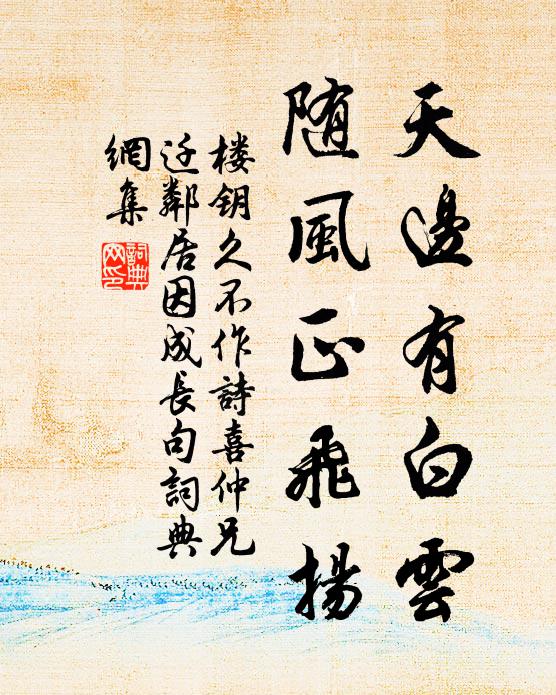 天邊有白雲
随風正飛揚
楼钥久不作詩喜仲兄
迁鄰居因成長句詞典
網集
詞典
网印